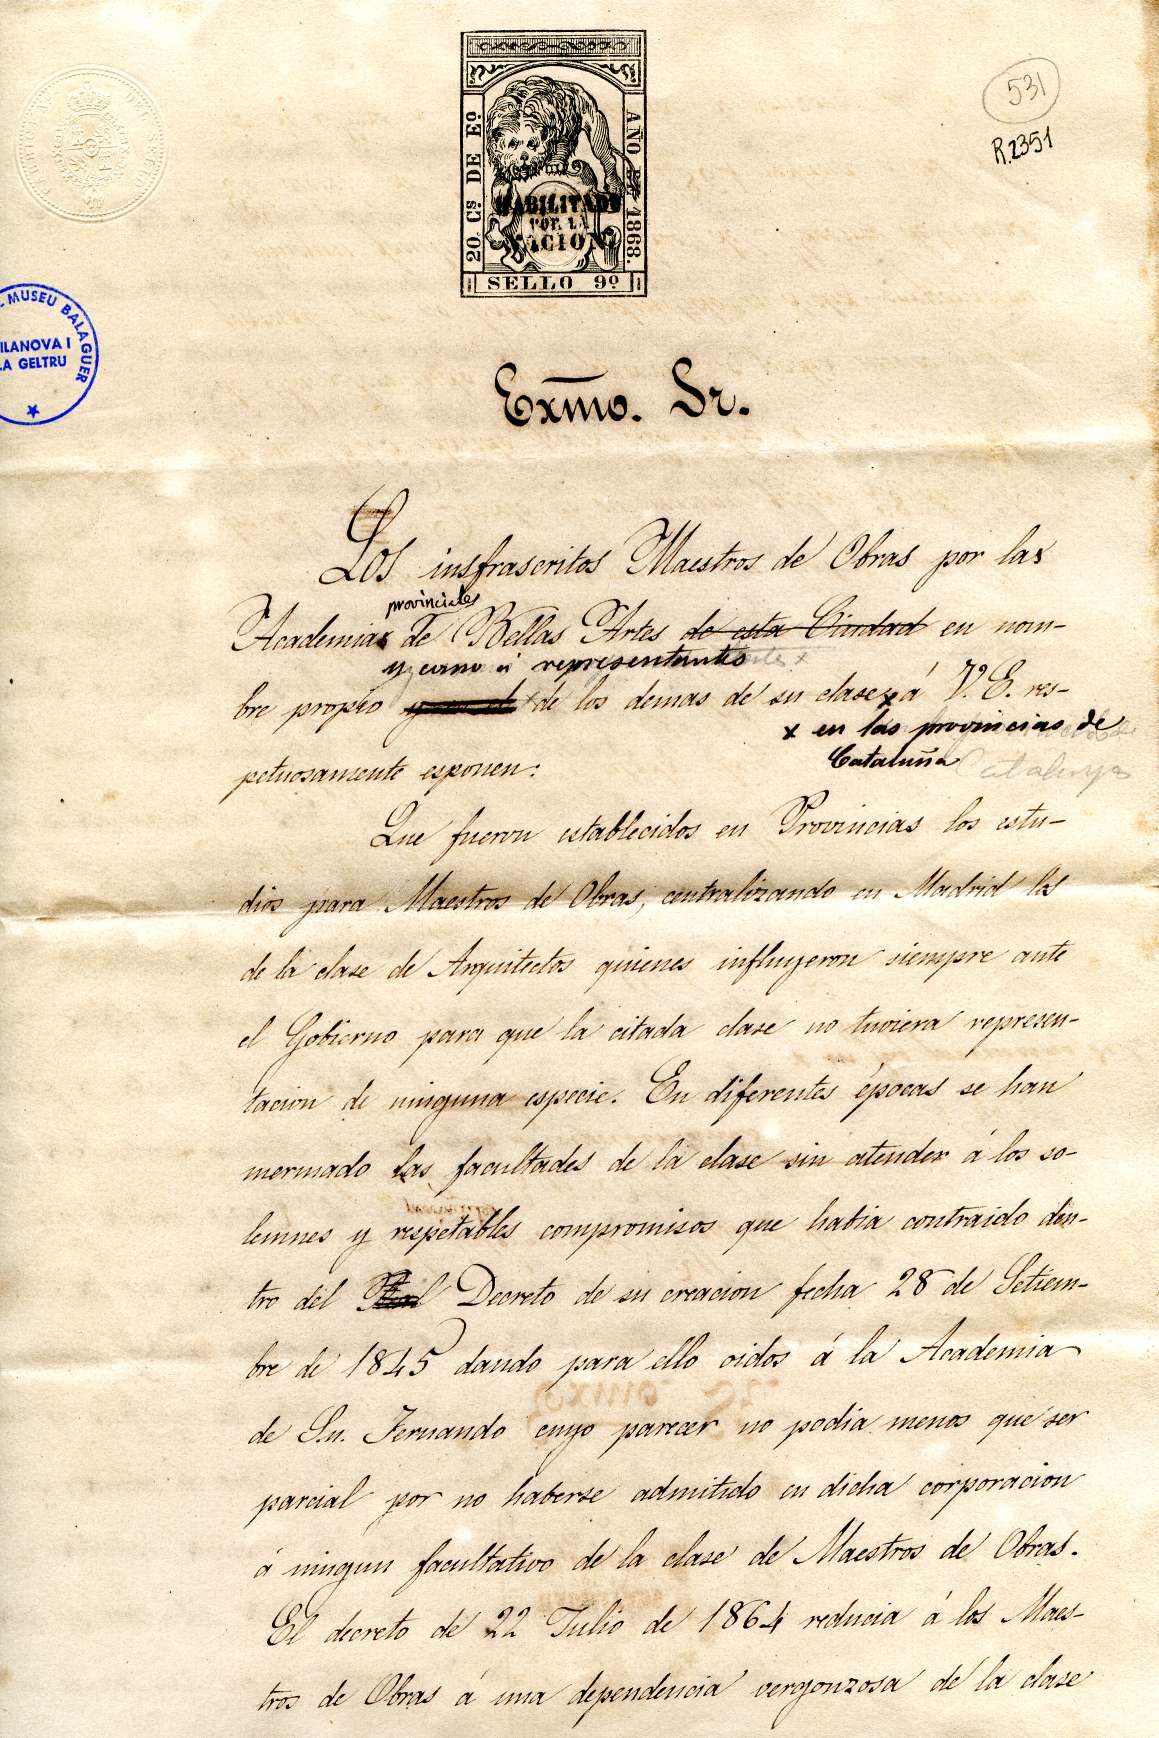 531
R.2351
20 Cs DE Eo
AÑO DE 1868.
HABILITADO
POR LA
NACION
SELLO 9º
MUSEU BALAGUER
ILANOVA I
LA GELTRU
Exmo. Sr.
Los insfrascritos Maestros de Obras por las
provinciales
Academias de Bellas Artes de esta Ciudad en nom-
y como á representantes
bre propio y en el x de los demas de su clase x á V. E. res-
x en las provincias de
Cataluña Catalunya
petuosamente esponen:
Que fueron establecidos en Provincias los estu-
dios para Maestros de Obras, centralizando en Madrid los
de la clase de Arquitectos quienes influyeron siempre ante
el Gobierno para que la citada clase no tuviera represen-
tacion de ninguna especie. En diferentes épocas se han
mermado las facultades de la clase sin atender á los so-
lemnes y respetables compromisos que habia contraido den-
tro del Real Decreto de su creacion fecha 28 de Setiem-
bre de 1845 dando para ello oidos á la Academia
de Sn. Fernando cuyo parecer no podia menos que ser
parcial por no haberse admitido en dicha corporacion
á ningun facultativo de la clase de Maestros de Obras.
El decreto de 22 Julio de 1864 reducia á los Maes-
tros de Obras á una dependencia vergonzosa de la clase